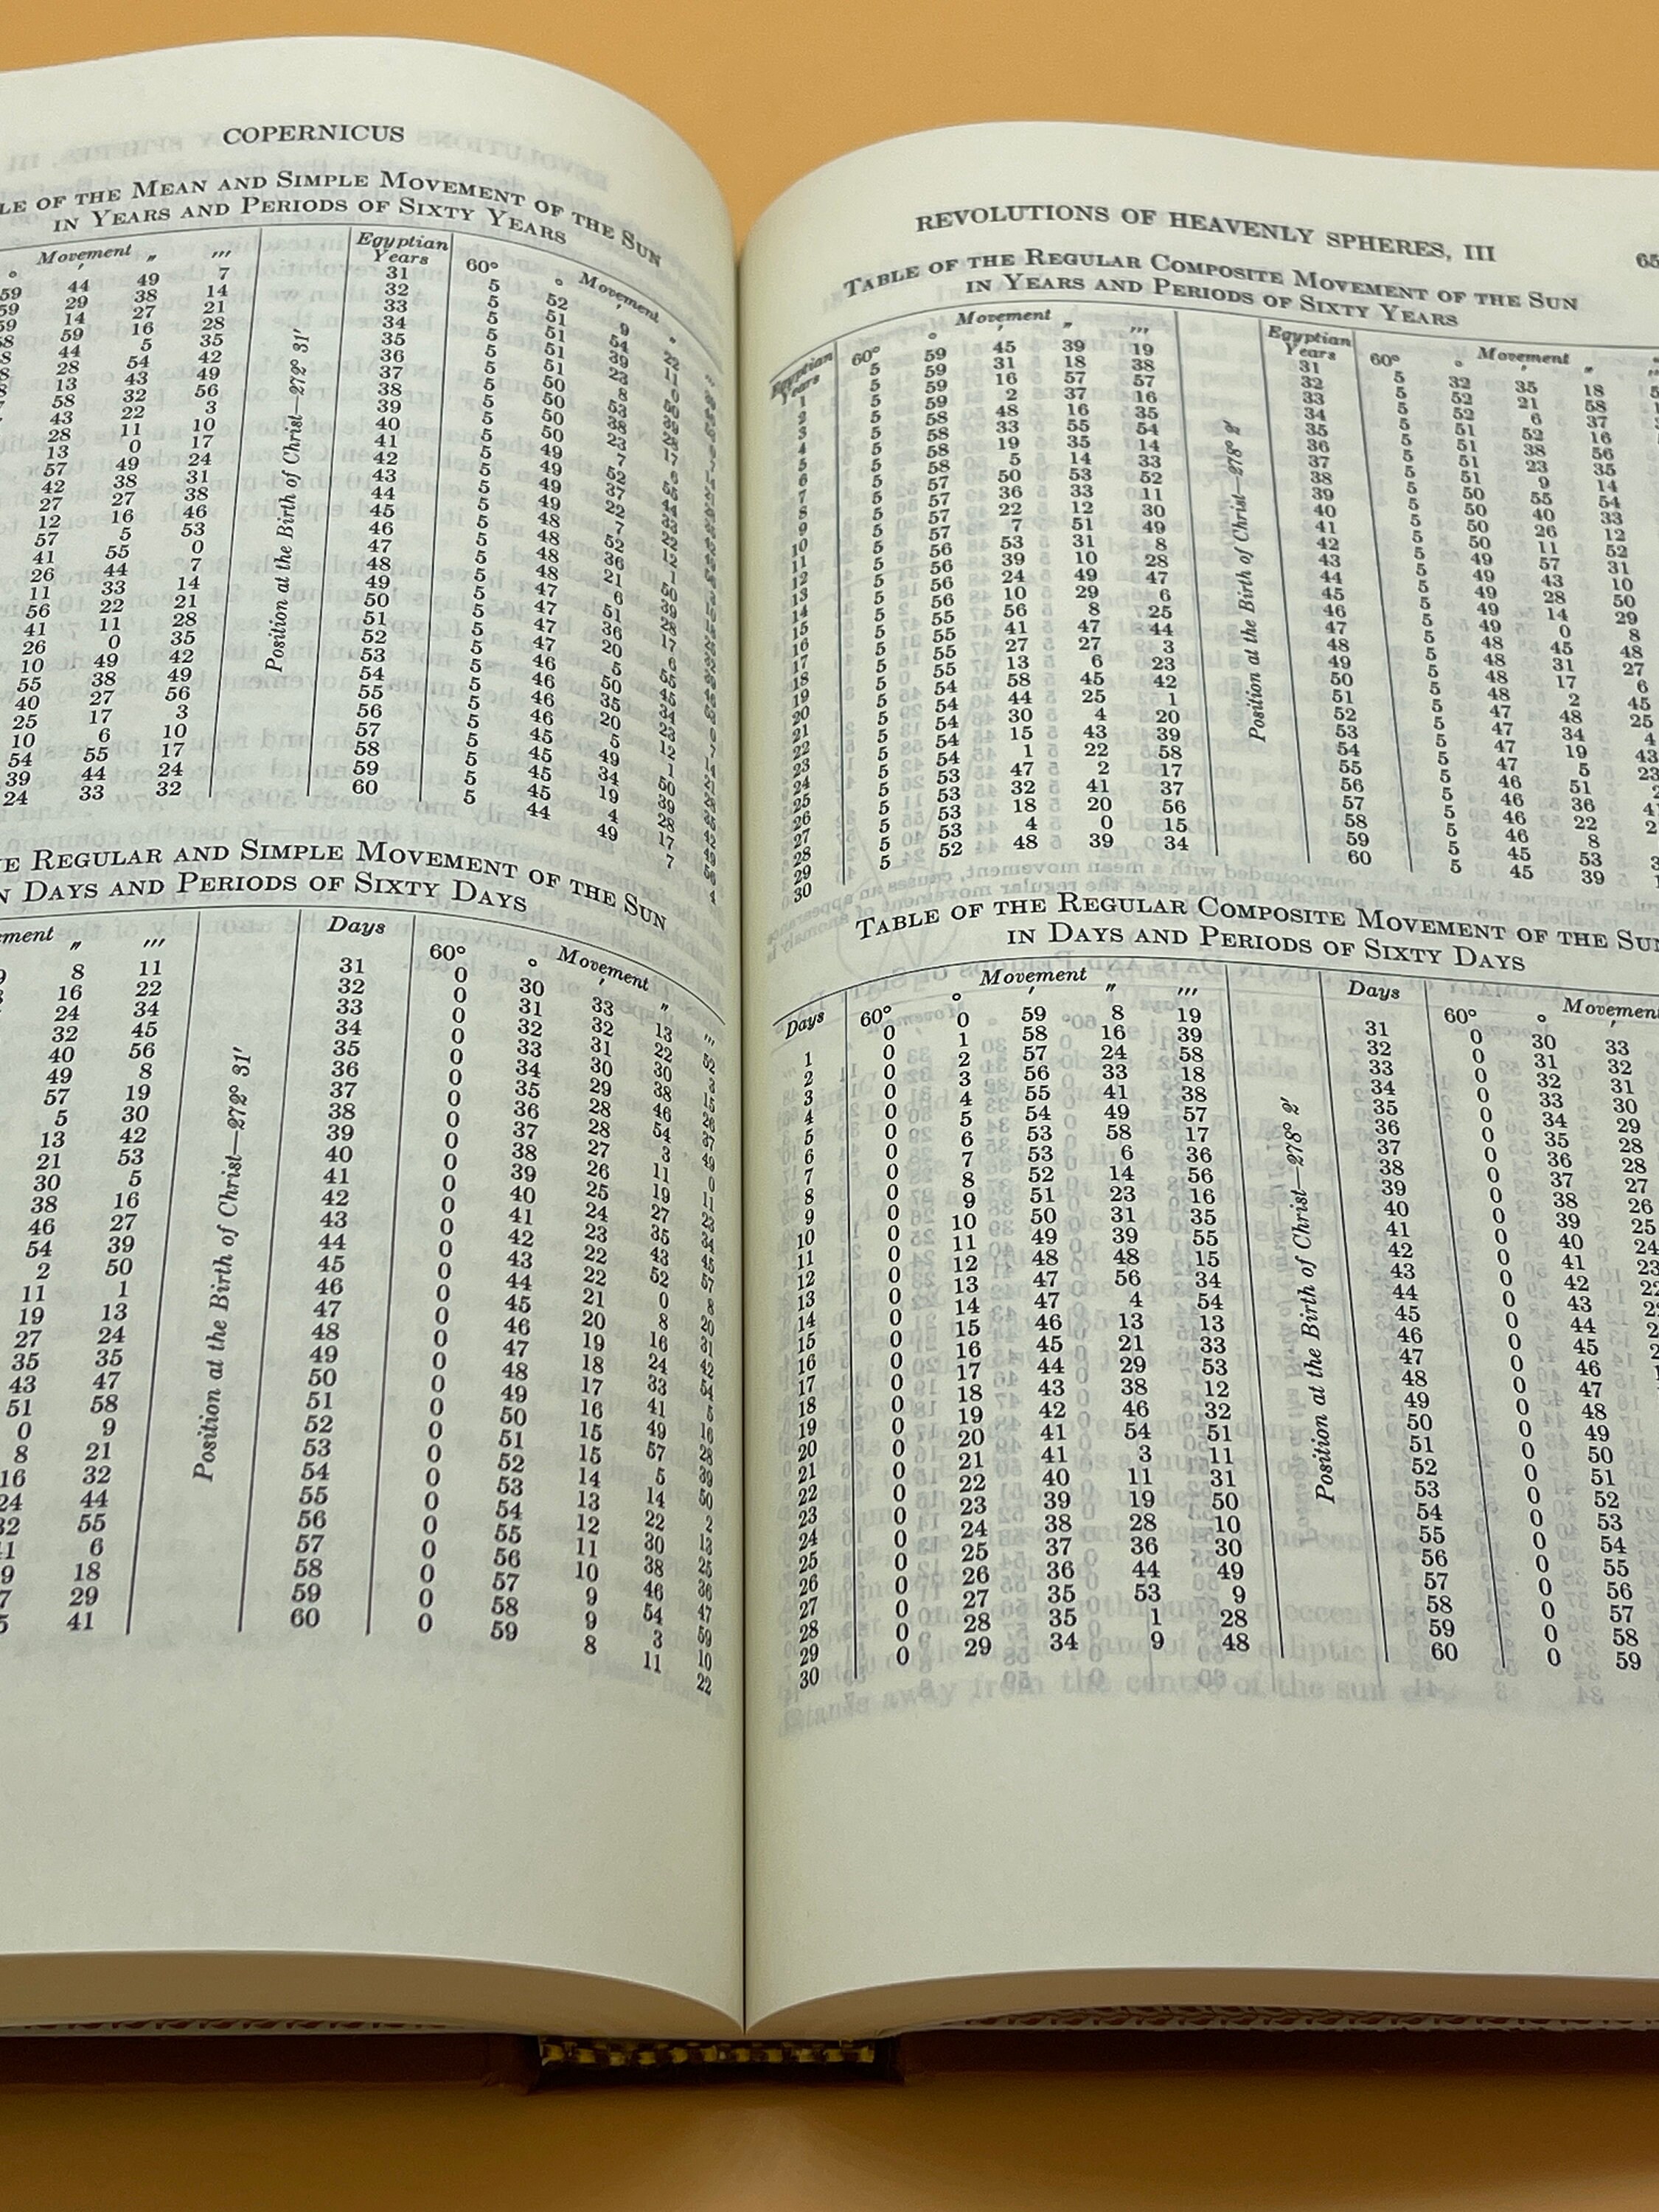 COPERNICUS
LE OF THE MEAN AND SIMPLE MOVEMENT OF THE SUN
IN YEARS AND PERIODS OF SIXTY YEARS
Movement Egyptian Years Movement
° ′ ″ ‴ 60° ° ′ ″
59 44 49 7 31 5 52 9 22
59 29 38 14 32 5 51 54 11
59 14 27 21 33 5 51 39 0
58 59 16 28 34 5 51 23 50
58 44 5 35 35 5 51 8 39
28 54 42 36 5 50 53 28
13 43 49 37 5 50 38 17
58 32 56 38 5 50 23 6
43 22 3 39 5 50 7 55
28 11 10 40 5 49 52 44
13 0 17 41 5 49 37 33
57 49 24 42 5 49 22 22
42 38 31 43 5 49 7 12
27 27 38 44 5 48 52 1
12 16 46 45 5 48 36 50
57 5 53 46 5 48 21 39
41 55 0 47 5 48 6 28
26 44 7 48 5 47 51 17
11 33 14 49 5 47 36 6
56 22 21 50 5 47 20 55
41 11 28 51 5 47 5 45
26 0 35 52 5 46 50 34
10 49 42 53 5 46 35 23
55 38 49 54 5 46 20 12
40 27 56 55 5 46 5 1
25 17 3 56 5 45 49 50
10 6 10 57 5 45 34 39
54 55 17 58 5 45 19 28
39 44 24 59 5 45 4 17
24 33 32 60 5 44 49 7
Position at the Birth of Christ—272° 31′
E REGULAR AND SIMPLE MOVEMENT OF THE SUN
N DAYS AND PERIODS OF SIXTY DAYS
ement Days Movement
″ ‴ 60° ° ′ ″ ‴
8 11 31 0 30 33 13 52
16 22 32 0 31 32 22 3
24 34 33 0 32 31 30 15
32 45 34 0 33 30 38 26
40 56 35 0 34 29 46 37
49 8 36 0 35 28 54 49
57 19 37 0 36 28 3 0
5 30 38 0 37 27 11 11
13 42 39 0 38 26 19 23
21 53 40 0 39 25 27 34
30 5 41 0 40 24 35 45
38 16 42 0 41 23 43 57
46 27 43 0 42 22 52 8
54 39 44 0 43 22 0 20
2 50 45 0 44 21 8 31
11 1 46 0 45 20 16 42
19 13 47 0 46 19 24 54
27 24 48 0 47 18 33 5
35 35 49 0 48 17 41 16
43 47 50 0 49 16 49 28
51 58 51 0 50 15 57 39
0 9 52 0 51 15 5 50
8 21 53 0 52 14 14 2
16 32 54 0 53 13 22 13
24 44 55 0 54 12 30 25
32 55 56 0 55 11 38 36
1 6 57 0 56 10 46 47
9 18 58 0 57 9 54 59
7 29 59 0 58 9 3 10
5 41 60 0 59 8 11 22
Position at the Birth of Christ—272° 31′
REVOLUTIONS OF HEAVENLY SPHERES, III 65
TABLE OF THE REGULAR COMPOSITE MOVEMENT OF THE SUN
IN YEARS AND PERIODS OF SIXTY YEARS
Egyptian Years Movement Egyptian Years Movement
60° ° ′ ″ ‴ 60° ° ′ ″
1 5 59 45 39 19 31 5 32 35 18
2 5 59 31 18 38 32 5 52 21 58
3 5 59 16 57 57 33 5 52 6 37
4 5 59 2 37 16 34 5 51 52 16
5 5 58 48 16 35 35 5 51 38 56
6 5 58 33 55 54 36 5 51 23 35
7 5 58 19 35 14 37 5 51 9 14
8 5 58 5 14 33 38 5 50 55 54
9 5 57 50 53 52 39 5 50 40 33
10 5 57 36 33 11 40 5 50 26 12
11 5 57 22 12 30 41 5 50 11 52
12 5 57 7 51 49 42 5 49 57 31
13 5 56 53 31 8 43 5 49 43 10
14 5 56 39 10 28 44 5 49 28 50
15 5 56 24 49 47 45 5 49 14 29
16 5 56 10 29 6 46 5 49 0 8
17 5 55 56 8 25 47 5 48 45 48
18 5 55 41 47 44 48 5 48 31 27
19 5 55 27 27 3 49 5 48 17 6
20 5 55 13 6 23 50 5 48 2 45
21 5 54 58 45 42 51 5 47 48 25
22 5 54 44 25 1 52 5 47 34 4
23 5 54 30 4 20 53 5 47 19 43
24 5 54 15 43 39 54 5 47 5 23
25 5 54 1 22 58 55 5 46 51
26 5 53 47 2 17 56 5 46 36
27 5 53 32 41 37 57 5 46 22
28 5 53 18 20 56 58 5 46 8
29 5 53 4 0 15 59 5 45 53
30 5 52 48 39 34 60 5 45 39
Position at the Birth of Christ—278° 2′
TABLE OF THE REGULAR COMPOSITE MOVEMENT OF THE SUN
IN DAYS AND PERIODS OF SIXTY DAYS
Days Movement Days Movement
60° ° ′ ″ ‴ 60° ° ′
1 0 0 59 8 19 31 0 30 33
2 0 1 58 16 39 32 0 31 32
3 0 2 57 24 58 33 0 32 31
4 0 3 56 33 18 34 0 33 30
5 0 4 55 41 38 35 0 34 29
6 0 5 54 49 57 36 0 35 28
7 0 6 53 58 17 37 0 36 28
8 0 7 53 6 36 38 0 37 27
9 0 8 52 14 56 39 0 38 26
10 0 9 51 23 16 40 0 39 25
11 0 10 50 31 35 41 0 40 24
12 0 11 49 39 55 42 0 41 23
13 0 12 48 48 15 43 0 42 22
14 0 13 47 56 34 44 0 43 22
15 0 14 47 4 54 45 0 44
16 0 15 46 13 13 46 0 45
17 0 16 45 21 33 47 0 46
18 0 17 44 29 53 48 0 47
19 0 18 43 38 12 49 0 48
20 0 19 42 46 32 50 0 49
21 0 20 41 54 51 51 0 50
22 0 21 41 3 11 52 0 51
23 0 22 40 11 31 53 0 52
24 0 23 39 19 50 54 0 53
25 0 24 38 28 10 55 0 54
26 0 25 37 36 30 56 0 55
27 0 26 36 44 49 57 0 56
28 0 27 35 53 9 58 0 57
29 0 28 35 1 28 59 0 58
30 0 29 34 9 48 60 0 59
Position at the Birth of Christ—278° 2′